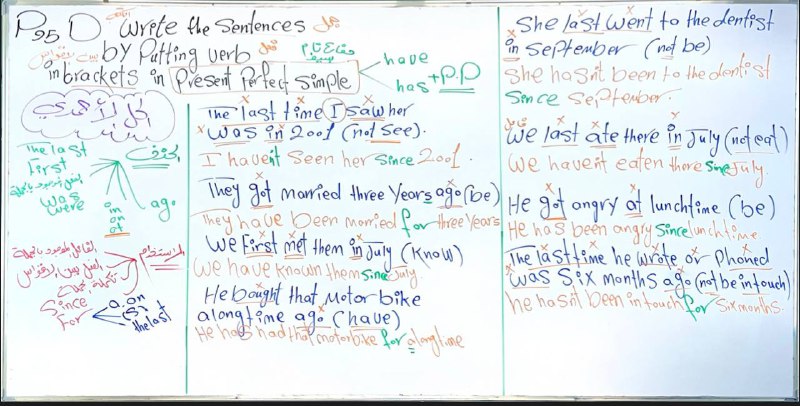 P95 D Write the Sentences جمل
by Putting verb فعل
in brackets in Present Perfect Simple
have
has + P.P
الحل الأحمدي
The last
First
was
were
الحذف
in
on
at
ago
نستخدم
Since
For
a, on
(s)
the last
The last time I saw her
was in 2001 (not see).
I haven't seen her since 2001.
They got married three years ago (be)
They have been married for three years
We First met them in July (Know)
We have known them since July
He bought that motorbike
along time ago (have)
He has had that motorbike for along time
She last went to the dentist
in September (not be)
She hasn't been to the dentist
since September.
We last ate there in July (not eat)
We haven't eaten there since July.
He got angry at lunchtime (be)
He has been angry since lunchtime
The last time he wrote or phoned
was six months ago (not be in touch)
he hasn't been in touch for six months.